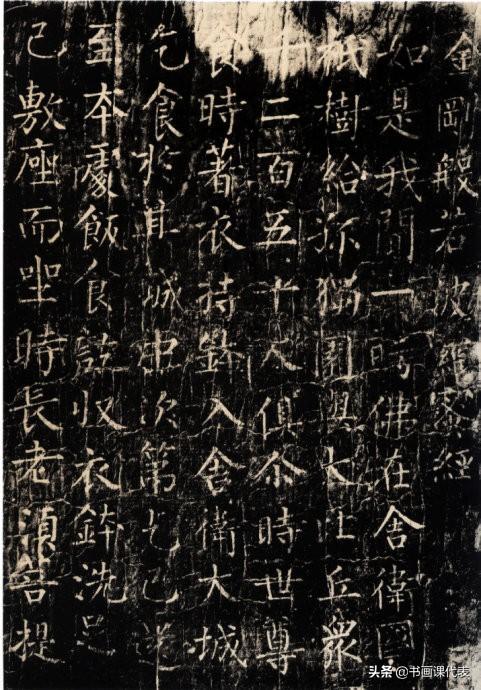 金剛般若波羅蜜經
如是我聞一時佛在舍衛國
祇樹給孤獨園與大比丘衆
千二百五十人俱尒時世尊
食時著衣持鉢入舍衛大城
乞食於其城中次第乞已還
至本處飯食訖収衣鉢洗足
已敷座而坐時長老湏菩提
头条@书画课代表